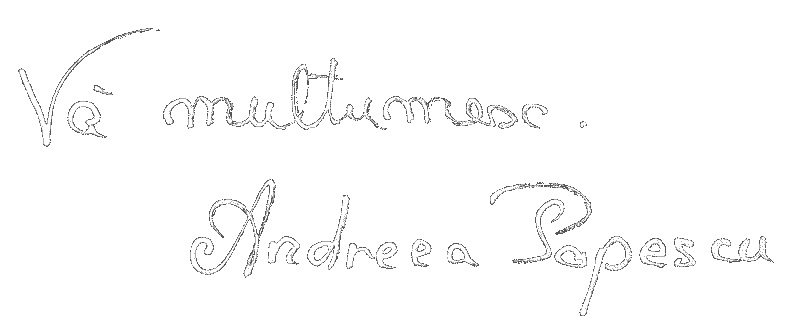 Vă multumesc.
Andreea Popescu